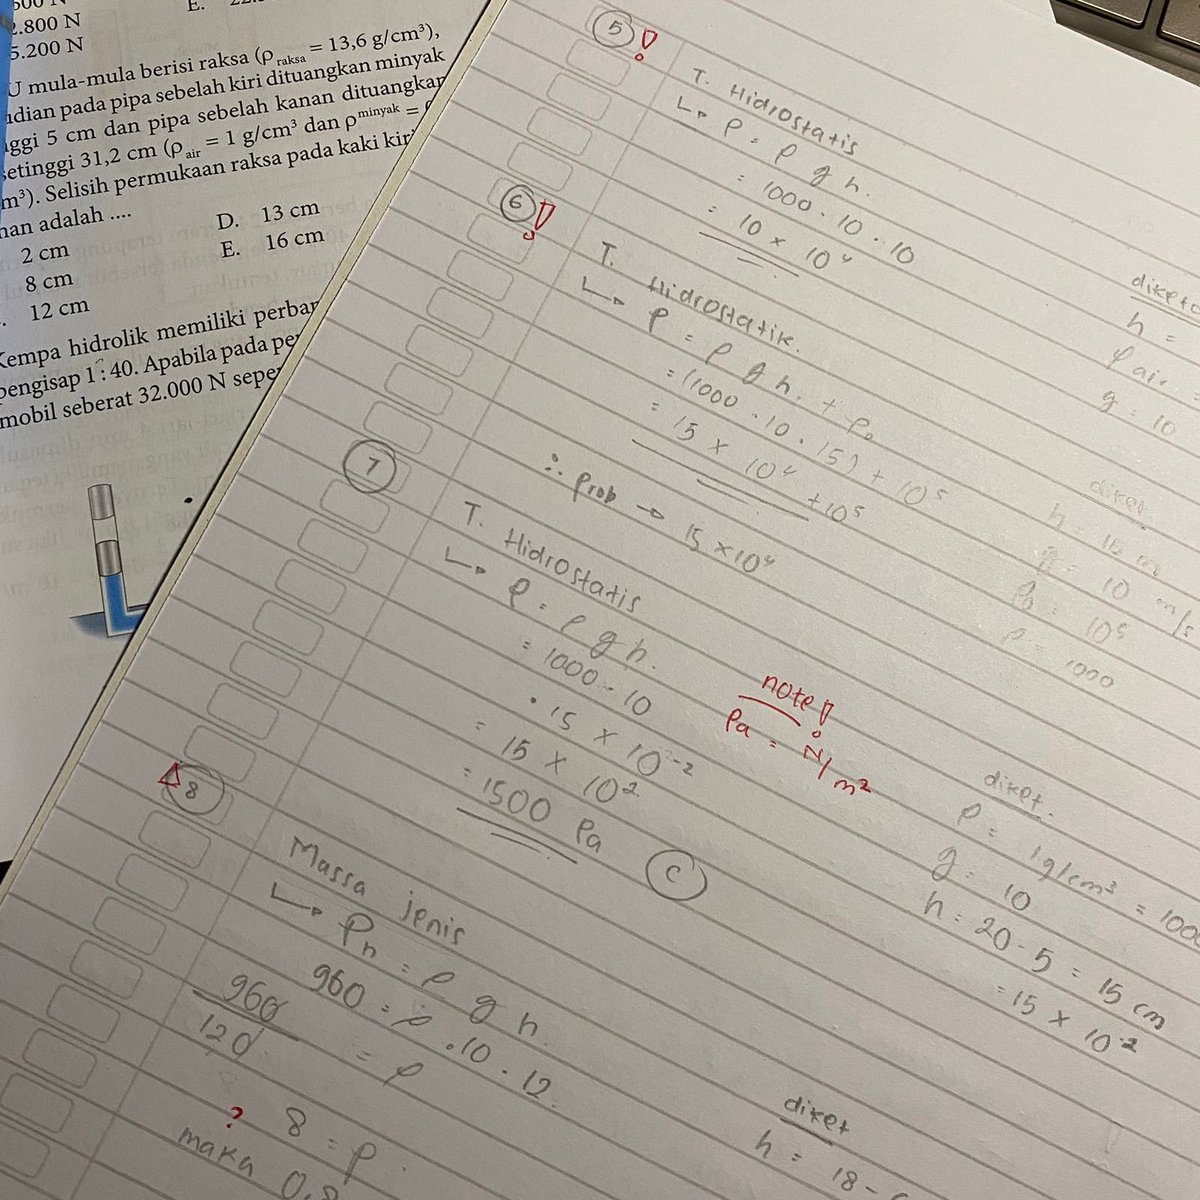 2.800 N
E.
5.200 N
U mula-mula berisi raksa (ρ raksa = 13,6 g/cm³),
dian pada pipa sebelah kiri dituangkan minyak
ggi 5 cm dan pipa sebelah kanan dituangkan
setinggi 31,2 cm (ρ air = 1 g/cm³ dan ρ minyak =
m³). Selisih permukaan raksa pada kaki kir
nan adalah ....
2 cm
D. 13 cm
8 cm
E. 16 cm
12 cm
Kempa hidrolik memiliki perbar
pengisap 1 : 40. Apabila pada pe
mobil seberat 32.000 N sepe
5 !
T. Hidrostatis
↳ P = ρ g h.
= 1000 · 10 · 10
= 10 × 10⁴
diketa
h =
ρ air =
g = 10
6 !
T. Hidrostatik.
↳ P = ρ g h. + P₀
= (1000 · 10 · 15) + 10⁵
= 15 × 10⁴ + 10⁵
∴ Prob → 15 × 10⁴
diket.
h = 15 m
g = 10 m/s
P₀ = 10⁵
ρ = 1000
7
T. Hidrostatis
↳ P = ρ g h.
= 1000 · 10
· 15 × 10⁻²
= 15 × 10²
= 1500 Pa
C
note!
Pa = N/m²
diket.
ρ = 1 g/cm³ = 1000
g = 10
h = 20 - 5 = 15 cm
= 15 × 10⁻²
8
Massa jenis
↳ Pₕ = ρ g h
960 = ρ · 10 · 12.
960/120 = ρ
? 8 = ρ
maka 0,8
diket
h = 18 -